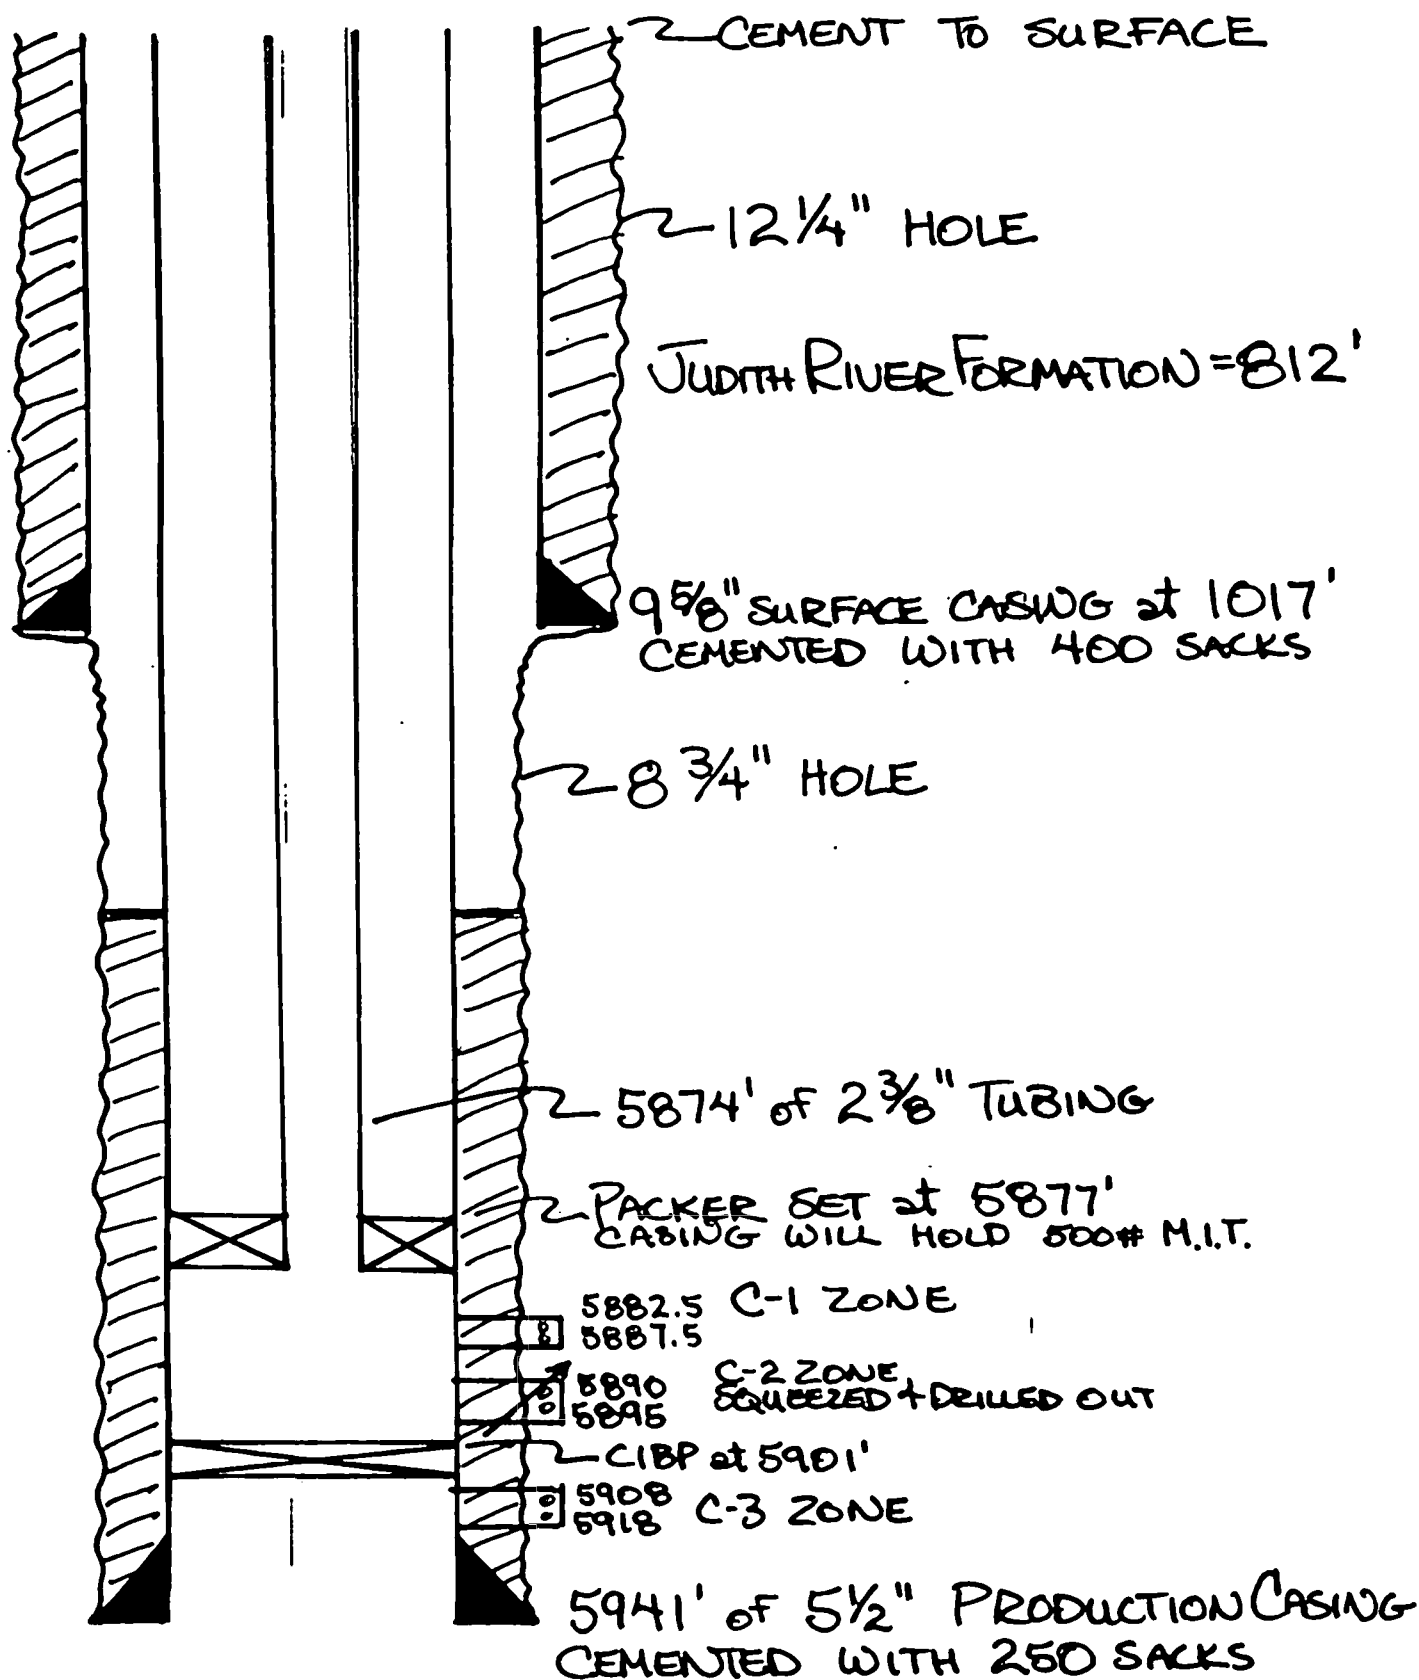 CEMENT TO SURFACE
12 1/4" HOLE
JUDITH RIVER FORMATION = 812'
9 5/8" SURFACE CASING at 1017'
CEMENTED WITH 400 SACKS
8 3/4" HOLE
5874' of 2 3/8" TUBING
PACKER SET at 5877'
CASING WILL HOLD 500# M.I.T.
5882.5 C-1 ZONE
5887.5
5890 C-2 ZONE
5895 SQUEEZED + DRILLED OUT
CIBP at 5901'
5908 C-3 ZONE
5918
5941' of 5 1/2" PRODUCTION CASING
CEMENTED WITH 250 SACKS